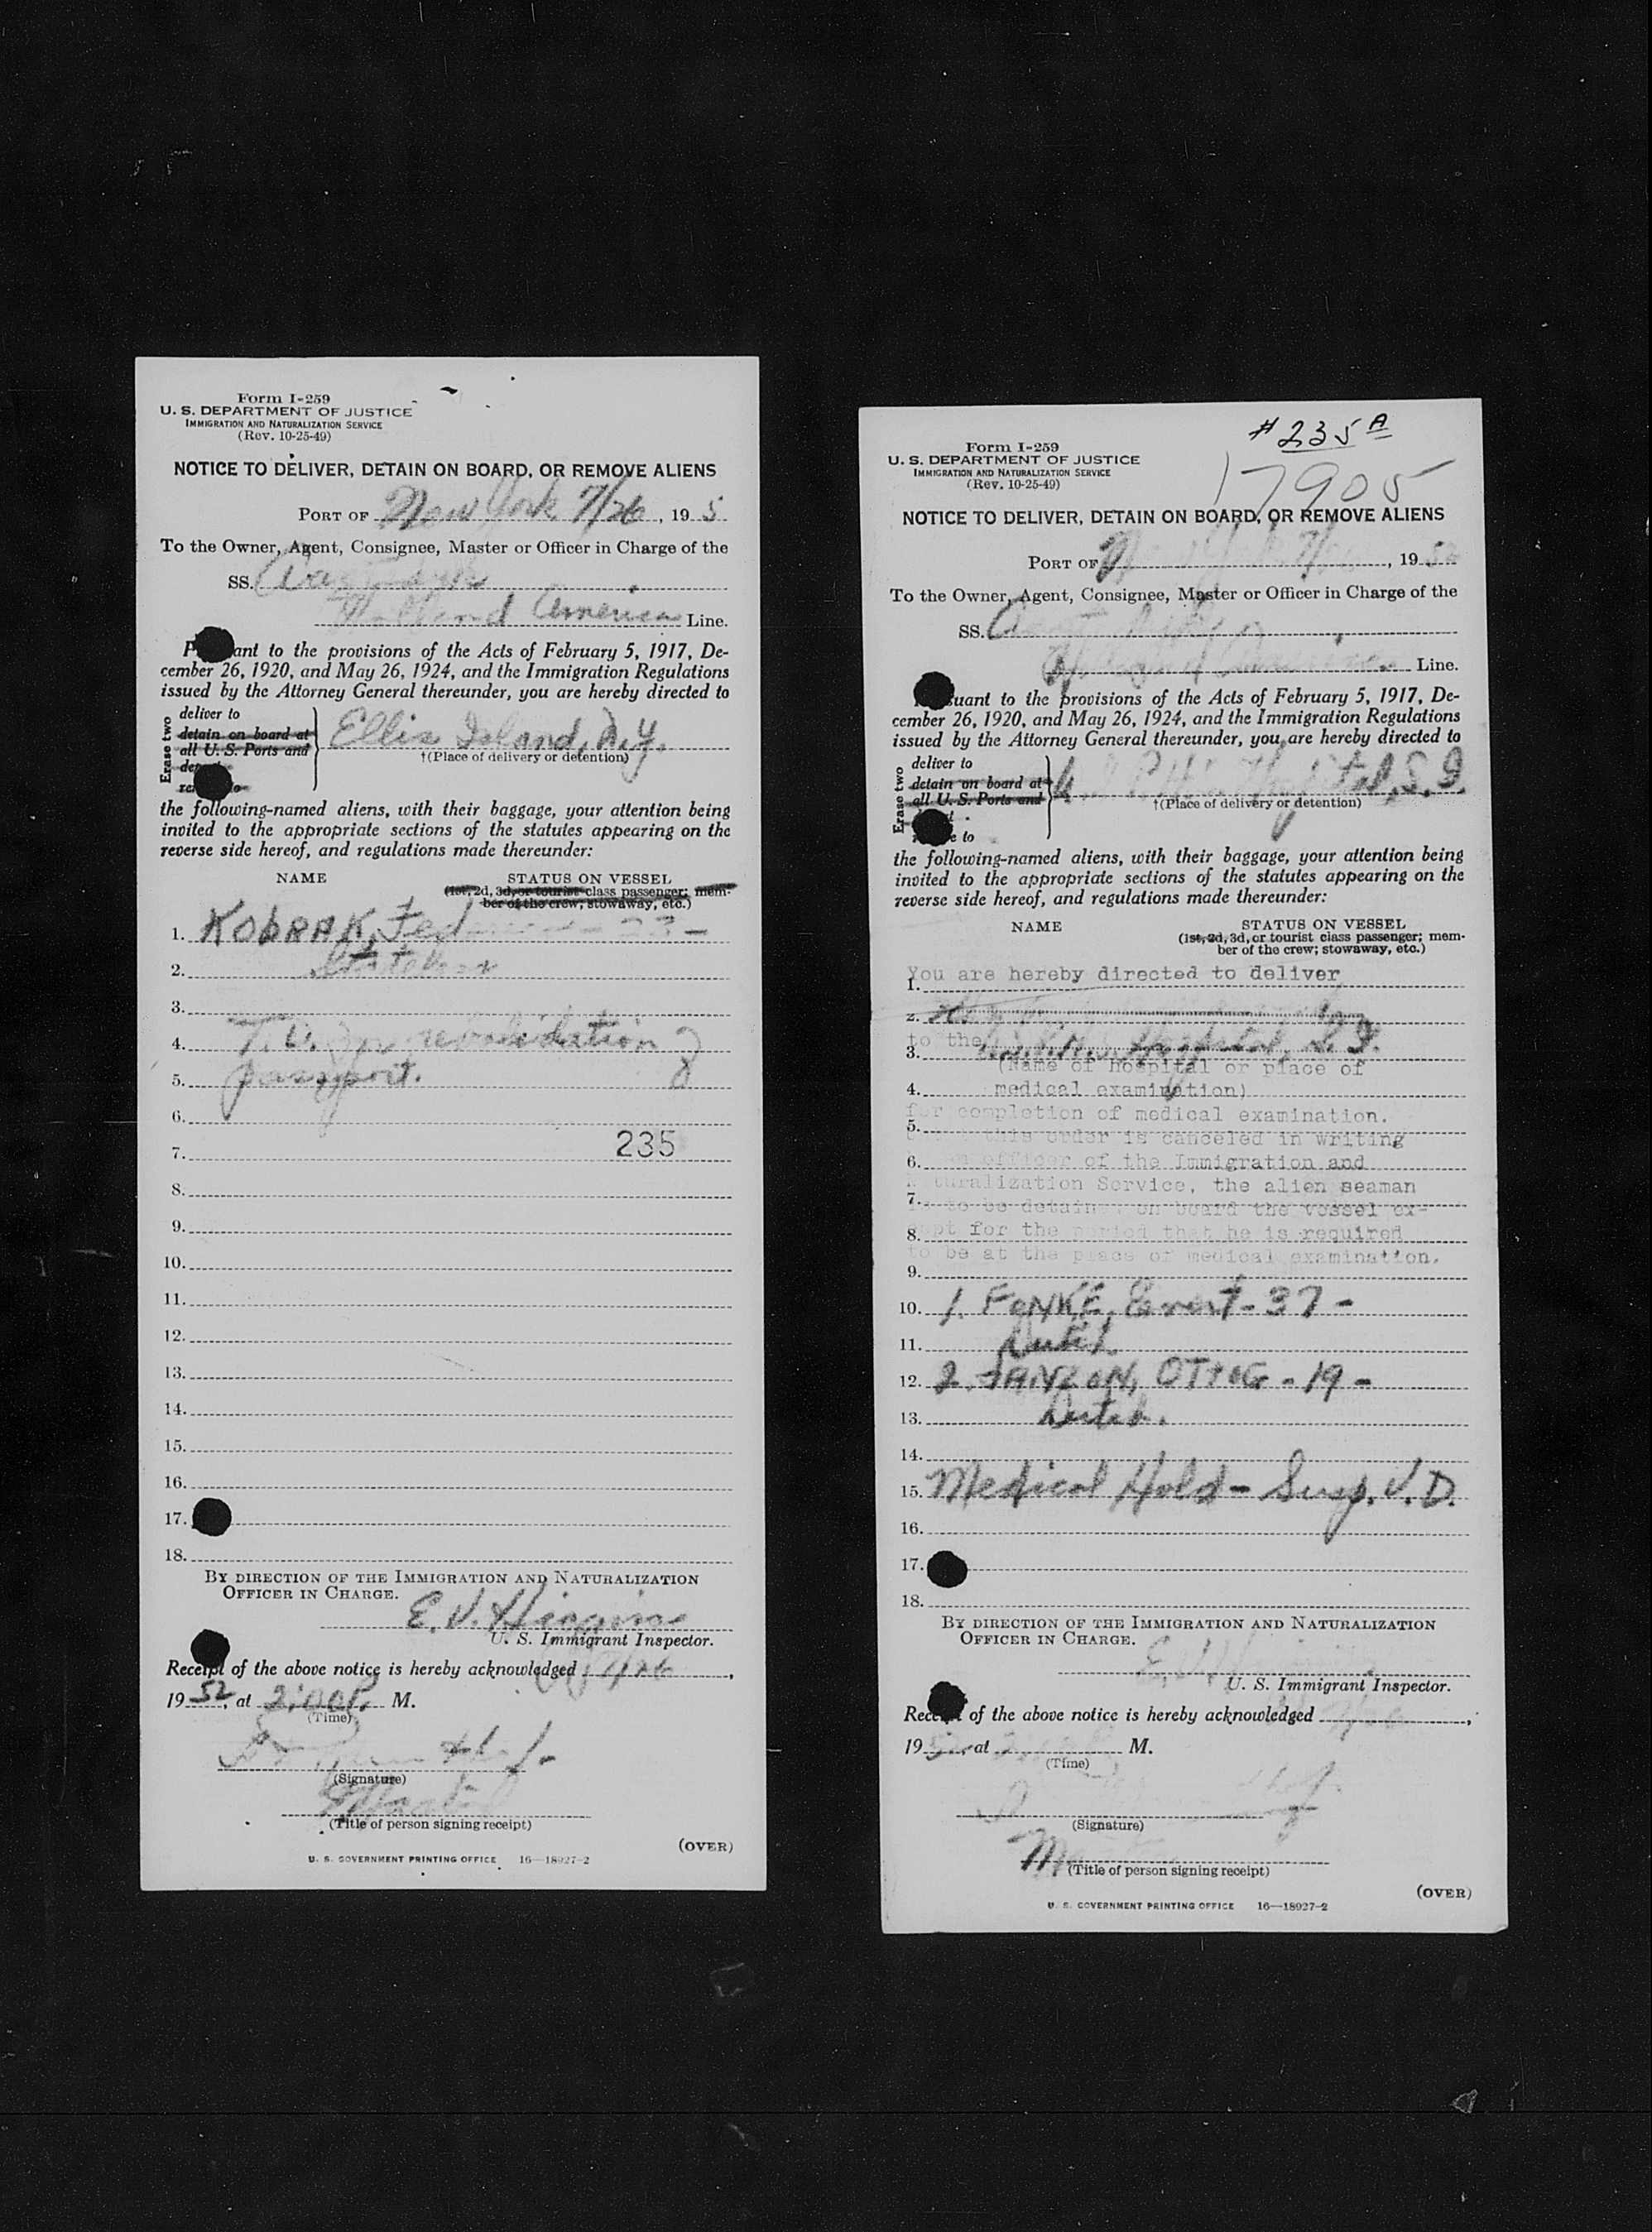 Form I-259
U. S. DEPARTMENT OF JUSTICE
IMMIGRATION AND NATURALIZATION SERVICE
(Rev. 10-25-49)
NOTICE TO DELIVER, DETAIN ON BOARD, OR REMOVE ALIENS
PORT OF New York 7/26, 195
To the Owner, Agent, Consignee, Master or Officer in Charge of the
SS.
Holland America Line.
ant to the provisions of the Acts of February 5, 1917, De-
cember 26, 1920, and May 26, 1924, and the Immigration Regulations
issued by the Attorney General thereunder, you are hereby directed to
Erase two
deliver to
detain on board at
all U. S. Ports and
Ellis Island, N.Y.
†(Place of delivery or detention)
the following-named aliens, with their baggage, your attention being
invited to the appropriate sections of the statutes appearing on the
reverse side hereof, and regulations made thereunder:
NAME STATUS ON VESSEL
(1st, 2d, 3d, or tourist class passenger; mem-
ber of the crew; stowaway, etc.)
1. KOBRAK,
2.
3.
4. revalidation of
5. passport.
6.
7. 235
8.
9.
10.
11.
12.
13.
14.
15.
16.
17.
18.
BY DIRECTION OF THE IMMIGRATION AND NATURALIZATION
OFFICER IN CHARGE.
E. V. Higgins
U. S. Immigrant Inspector.
Receipt of the above notice is hereby acknowledged 7/26,
1952, at 2:00 P. M.
(Time)
(Signature)
Master
(Title of person signing receipt)
(OVER)
U. S. GOVERNMENT PRINTING OFFICE 16—18927-2
#235A
17905
Form I-259
U. S. DEPARTMENT OF JUSTICE
IMMIGRATION AND NATURALIZATION SERVICE
(Rev. 10-25-49)
NOTICE TO DELIVER, DETAIN ON BOARD, OR REMOVE ALIENS
PORT OF , 1952
To the Owner, Agent, Consignee, Master or Officer in Charge of the
SS.
Line.
suant to the provisions of the Acts of February 5, 1917, De-
cember 26, 1920, and May 26, 1924, and the Immigration Regulations
issued by the Attorney General thereunder, you are hereby directed to
Erase two
deliver to
detain on board at
all U. S. Ports and
e to
Hospital, S. I.
†(Place of delivery or detention)
the following-named aliens, with their baggage, your attention being
invited to the appropriate sections of the statutes appearing on the
reverse side hereof, and regulations made thereunder:
NAME STATUS ON VESSEL
(1st, 2d, 3d, or tourist class passenger; mem-
ber of the crew; stowaway, etc.)
You are hereby directed to deliver
1.
2.
to the Hospital, S. I.
3.
(Name of hospital or place of
4. medical examination)
for completion of medical examination.
5.
this order is canceled in writing
6. officer of the Immigration and
Naturalization Service, the alien seaman
7.
is to be detained on board the vessel ex-
8. cept for the period that he is required
to be at the place of medical examination.
9.
10. 1. FONKE, Evert - 37 -
11. Dutch
12. 2. JANZON, OTTOG - 19 -
13. Dutch.
14.
15. Medical Hold - Susp. V. D.
16.
17.
18.
BY DIRECTION OF THE IMMIGRATION AND NATURALIZATION
OFFICER IN CHARGE.
E. V.
U. S. Immigrant Inspector.
Receipt of the above notice is hereby acknowledged ,
1952, at M.
(Time)
(Signature)
(Title of person signing receipt)
(OVER)
U. S. GOVERNMENT PRINTING OFFICE 16—18927-2